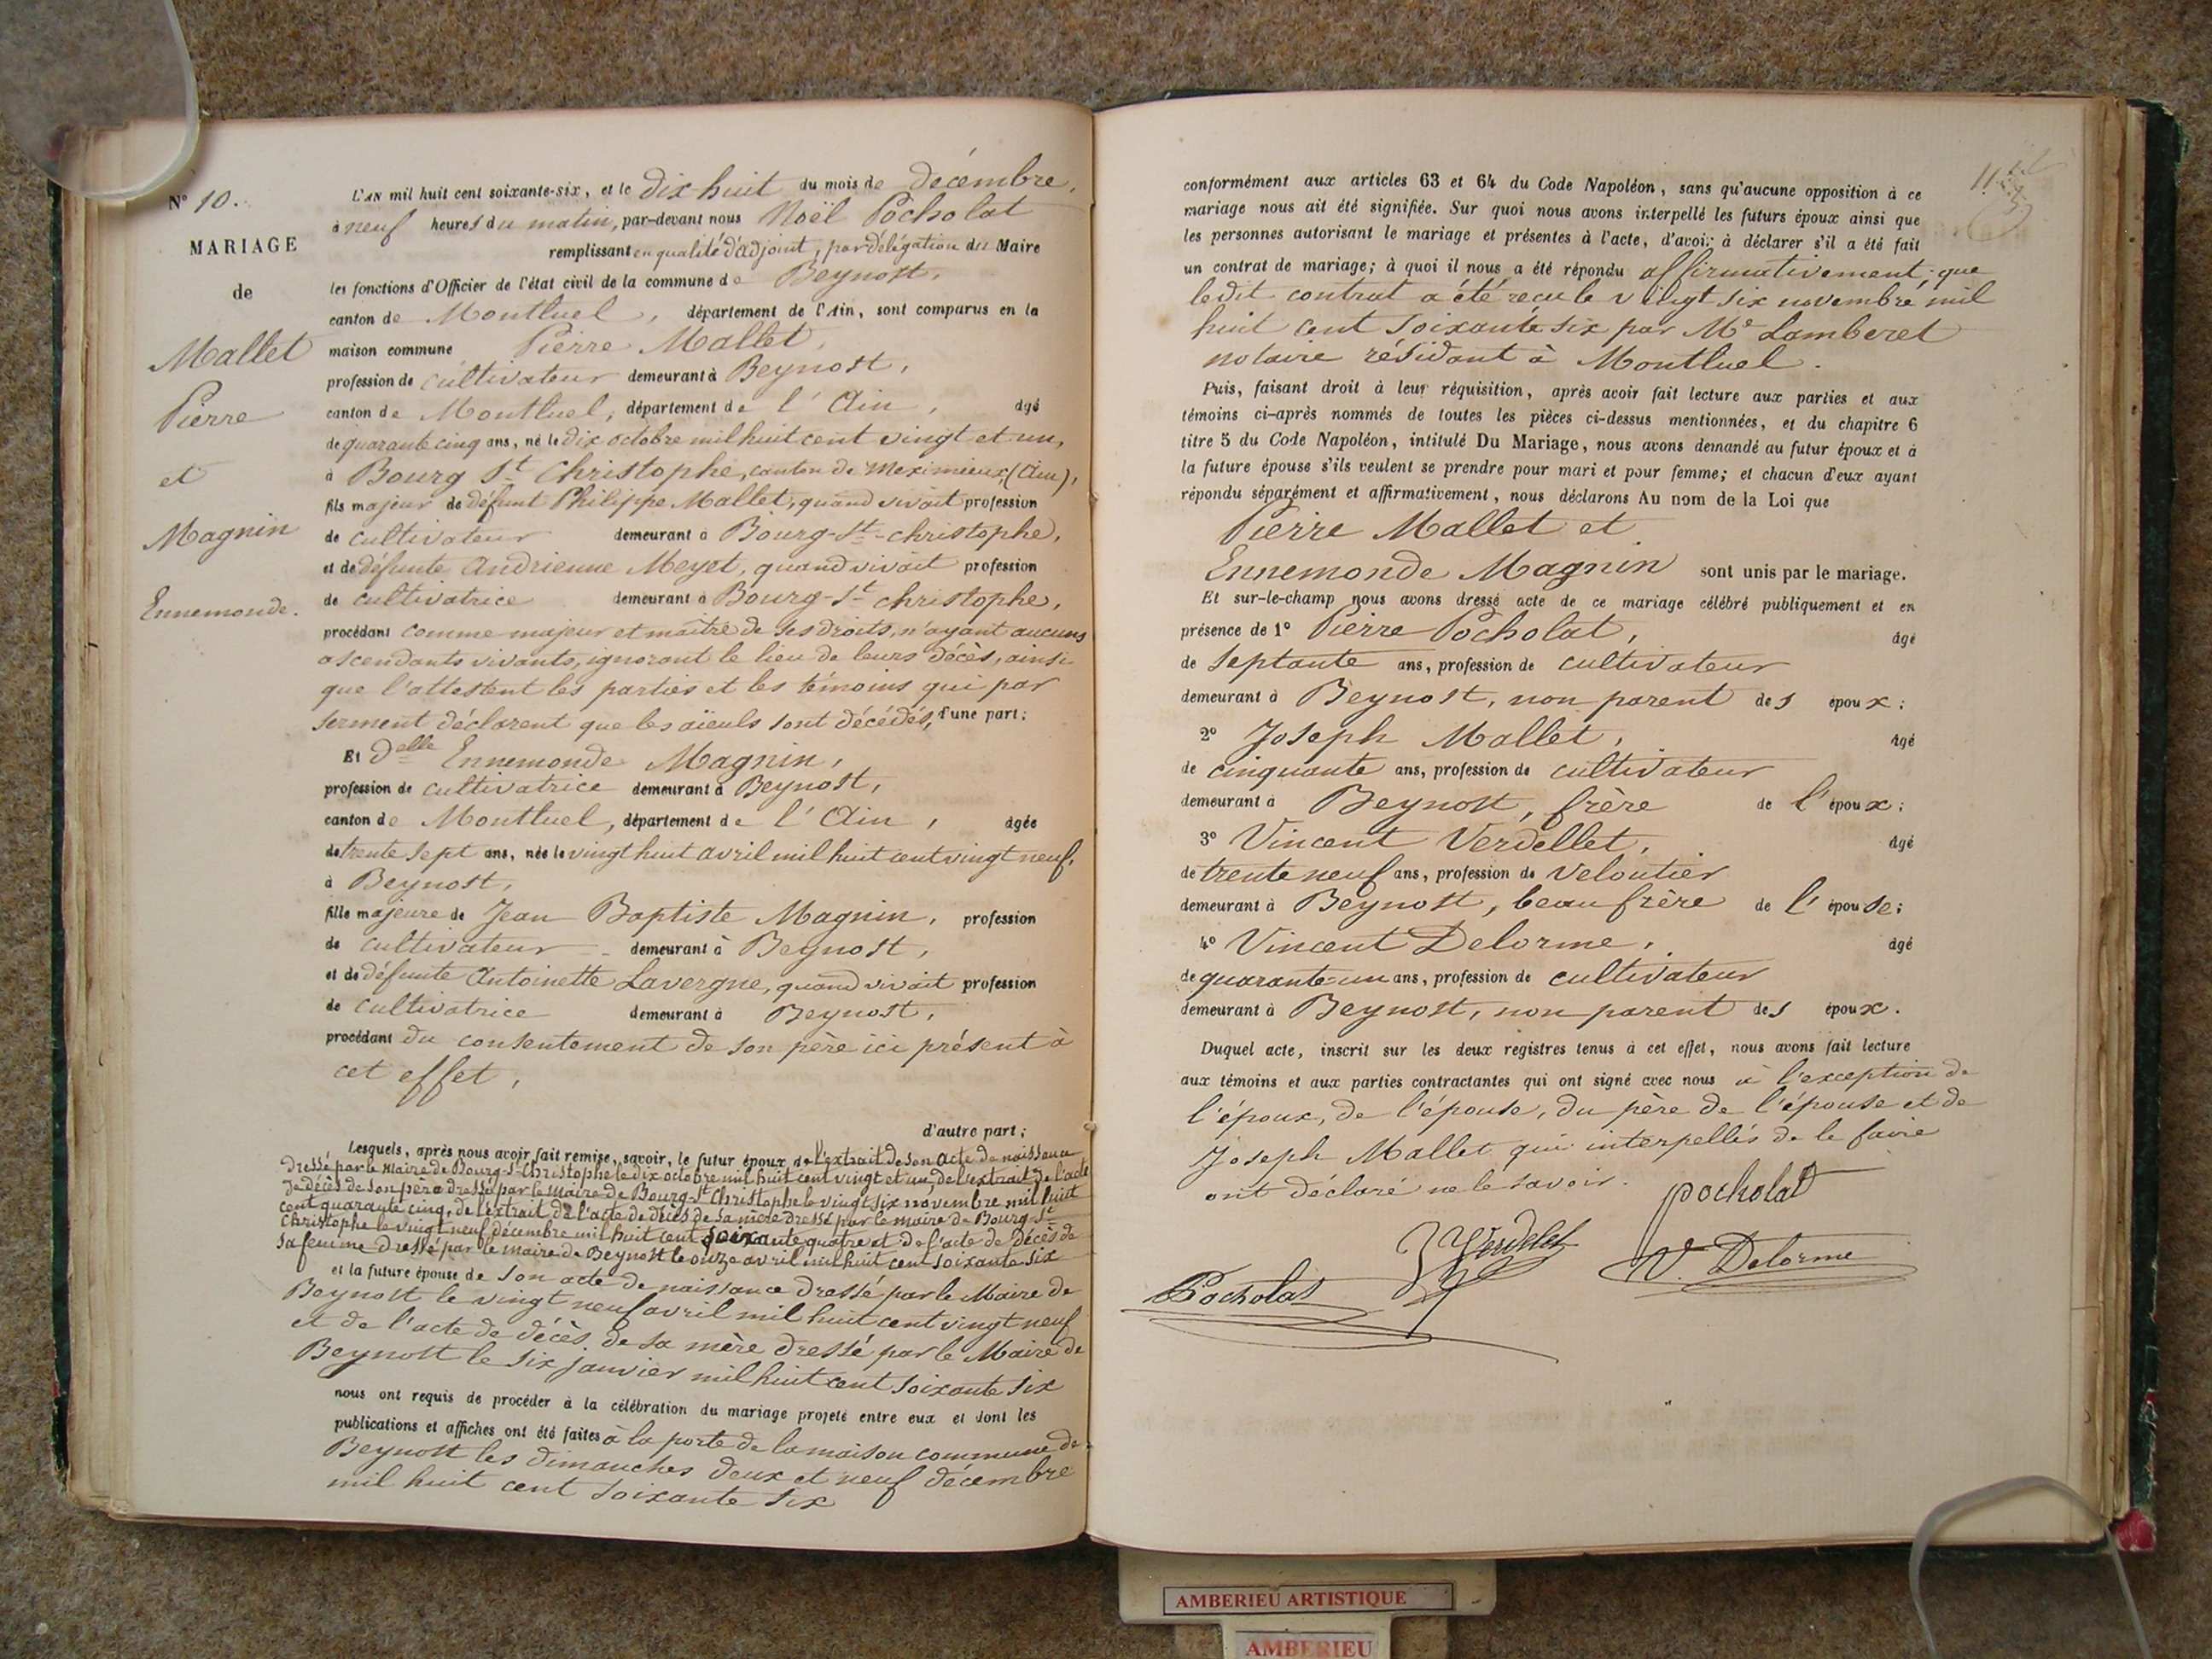 N° 10.
MARIAGE
de
Mallet
Pierre
et
Magnin
Ennemonde.
L'AN mil huit cent soixante-six, et le dix-huit du mois de décembre,
à neuf heures du matin, par-devant nous Noël Pocholat
remplissant en qualité d'adjoint, par délégation du Maire
les fonctions d'Officier de l'état civil de la commune de Beynost,
canton de Montluel, département de l'Ain, sont comparus en la
maison commune Pierre Mallet,
profession de cultivateur demeurant à Beynost,
canton de Montluel, département de l'Ain, âgé
de quarante cinq ans, né le dix octobre mil huit cent vingt et un,
à Bourg St Christophe, canton de Meximieux, (Ain),
fils majeur de défunt Philippe Mallet, quand vivait profession
de cultivateur demeurant à Bourg-St-christophe,
et de défunte Andrienne Meyet, quand vivait profession
de cultivatrice demeurant à Bourg-St-christophe,
procédant comme majeur et maître de ses droits, n'ayant aucuns
ascendants vivants, ignorant le lieu de leurs décès, ainsi
que l'attestent les parties et les témoins qui par
serment déclarent que les aïeuls sont décédés, d'une part;
Et Delle Ennemonde Magnin,
profession de cultivatrice demeurant à Beynost,
canton de Montluel, département de l'Ain, âgée
de trente sept ans, née le vingt huit avril mil huit cent vingt neuf,
à Beynost,
fille majeure de Jean Baptiste Magnin, profession
de cultivateur demeurant à Beynost,
et de défunte Antoinette Lavergne, quand vivait profession
de cultivatrice demeurant à Beynost,
procédant du consentement de son père ici présent à
cet effet,
d'autre part;
Lesquels, après nous avoir fait remise, savoir, le futur époux de l'extrait de son acte de naissance
dressé par le Maire de Bourg-St-Christophe le dix octobre mil huit cent vingt et un, de l'extrait de l'acte
de décès de son père dressé par le Maire de Bourg-St Christophe le vingt six novembre mil huit
cent quarante cinq, de l'extrait de l'acte de décès de sa mère dressé par le maire de Bourg-St
Christophe le vingt neuf décembre mil huit cent soixante quatre et de l'acte de décès de
sa femme dressé par le maire de Beynost le onze avril mil huit cent soixante six
et la future épouse de son acte de naissance dressé par le Maire de
Beynost le vingt neuf avril mil huit cent vingt neuf
et de l'acte de décès de sa mère dressé par le Maire de
Beynost le six janvier mil huit cent soixante six
nous ont requis de procéder à la célébration du mariage projeté entre eux et dont les
publications et affiches ont été faites à la porte de la maison commune de
Beynost les dimanches deux et neuf décembre
mil huit cent soixante six
conformément aux articles 63 et 64 du Code Napoléon, sans qu'aucune opposition à ce
mariage nous ait été signifiée. Sur quoi nous avons interpellé les futurs époux ainsi que
les personnes autorisant le mariage et présentes à l'acte, d'avoir à déclarer s'il a été fait
un contrat de mariage; à quoi il nous a été répondu affirmativement; que
le dit contrat a été reçu le vingt six novembre mil
huit cent soixante six par Me Lamberet
notaire résidant à Montluel.
Puis, faisant droit à leur réquisition, après avoir fait lecture aux parties et aux
témoins ci-après nommés de toutes les pièces ci-dessus mentionnées, et du chapitre 6
titre 5 du Code Napoléon, intitulé Du Mariage, nous avons demandé au futur époux et à
la future épouse s'ils veulent se prendre pour mari et pour femme; et chacun d'eux ayant
répondu séparément et affirmativement, nous déclarons Au nom de la Loi que
Pierre Mallet et
Ennemonde Magnin sont unis par le mariage.
Et sur-le-champ nous avons dressé acte de ce mariage célébré publiquement et en
présence de 1° Pierre Pocholat, âgé
de septante ans, profession de cultivateur
demeurant à Beynost, non parent des époux;
2° Joseph Mallet, âgé
de cinquante ans, profession de cultivateur
demeurant à Beynost, frère de l'époux;
3° Vincent Verdellet, âgé
de trente neuf ans, profession de veloutier
demeurant à Beynost, beau frère de l'épouse;
4° Vincent Delorme, âgé
de quarante un ans, profession de cultivateur
demeurant à Beynost, non parent des époux.
Duquel acte, inscrit sur les deux registres tenus à cet effet, nous avons fait lecture
aux témoins et aux parties contractantes qui ont signé avec nous à l'exception de
l'époux, de l'épouse, du père de l'épouse et de
Joseph Mallet qui interpellés de le faire
ont déclaré ne le savoir. pocholat
Verdelet
V. Delorme
Pocholat
AMBERIEU ARTISTIQUE
AMBERIEU